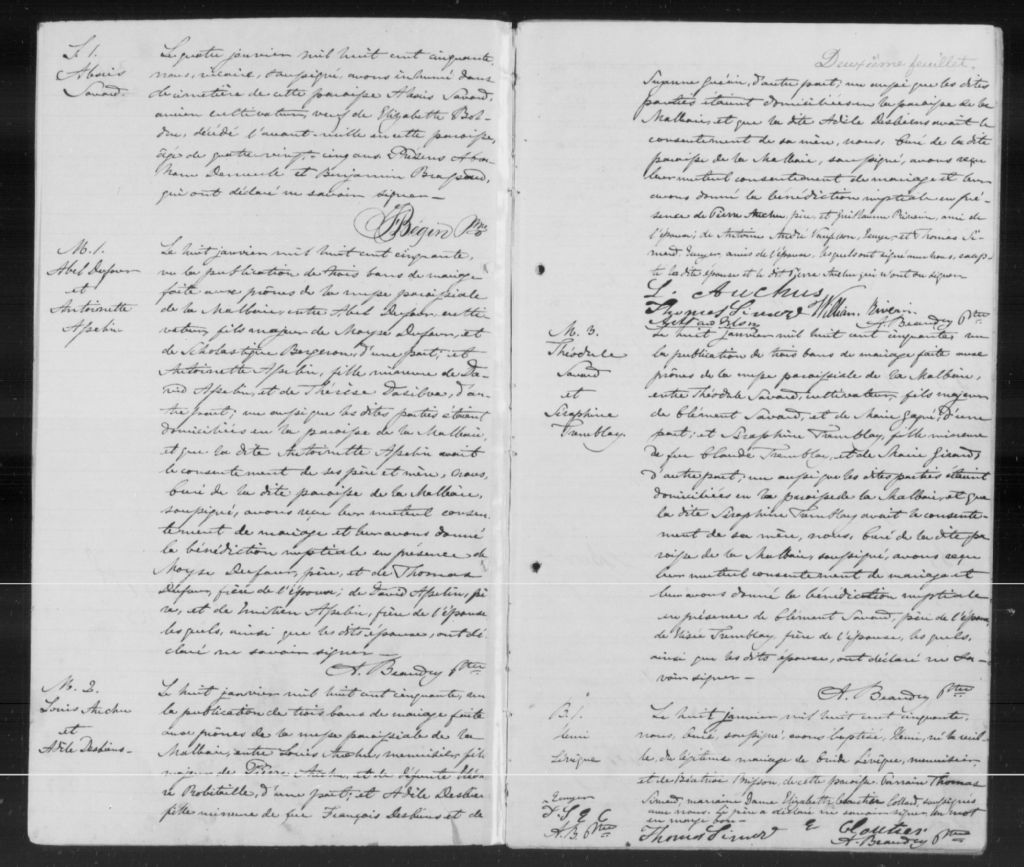 S. 1.
Abais
Savard.
Le quatre janvier mil huit cent cinquante,
nous, vicaire, soussigné, avons inhumé dans
le cimetière de cette paroisse Abais Savard,
ancien cultivateur, veuf de Elizabeth Bol-
duc, décédé l'avant-veille en cette paroisse,
âgé de quatre vingt-cinq ans. Présens Abra-
ham Demeule et Benjamin Brassard,
qui ont déclaré ne savoir signer —
Bégin Ptre
M. 1.
Abel Dufour
et
Antoinette
Asselin
Le huit janvier mil huit cent cinquante,
vu la publication de trois bans de mariage
faite aux prônes de la messe paroissiale
de la Malbaie, entre Abel Dufour, culti-
vateur, fils majeur de Moyse Dufour, et
de Scholastique Bergeron, d'une part; et
Antoinette Asselin, fille mineure de Da-
vid Asselin, et de Thérèse Dasilva, d'au-
tre part; vu aussi que les dites parties étaient
domiciliées en la paroisse de la Malbaie,
et que la dite Antoinette Asselin avait
le consentement de ses père et mère, nous,
Curé de la dite paroisse de la Malbaie,
soussigné, avons reçu leur mutuel consen-
tement de mariage et leur avons donné
la bénédiction nuptiale en présence de
Moyse Dufour, père, et de Thomas
Dufour, frère de l'époux; de David Asselin, pè-
re, et de Asselin, frère de l'épouse
lesquels, ainsi que les dits épouses, ont dé-
claré ne savoir signer —
A. Beaudry Ptre
M. 2.
Louis Auchu
et
Adèle Desbiens
Le huit janvier mil huit cent cinquante, vu
la publication de trois bans de mariage faite
aux prônes de la messe paroissiale de la
Malbaie, entre Louis Auchu, menuisier, fils
majeur de Pierre Auchu, et de défunte
Robitaille, d'une part; et Adèle Desbiens
fille mineure de feu François Desbiens et de
Deuxième feuillet.
Suzanne Guérin, d'autre part; vu aussi que les dites
parties étaient domiciliées en la paroisse de la
Malbaie, et que la dite Adèle Desbiens avait le
consentement de sa mère, nous, Curé de la dite
paroisse de la Malbaie, soussigné, avons reçu
leur mutuel consentement de mariage et leur
avons donné la bénédiction nuptiale en pré-
sence de Pierre Auchu, père, et Guillaume, ami de
l'époux; de Antoine André, Ecuyer, et Thomas Si-
mard, Ecuyer, amis de l'épouse, lesquels ont signé avec nous, excep-
té la dite épouse et le dit Pierre Auchu qui n'ont su signer
L. Auchus
Thomas Simard William
A. Beaudry Ptre
M. 3.
Théodule
Savard
et
Séraphine
Tremblay.
Le huit janvier mil huit cent cinquante, vu
la publication de trois bans de mariage faite aux
prônes de la messe paroissiale de la Malbaie,
entre Théodule Savard, cultivateur, fils majeur
de Clément Savard, et de Marie Gagné, d'une
part; et Séraphine Tremblay, fille mineure
de feu Claude Tremblay, et de Marie Girard,
d'autre part; vu aussi que les dites parties étaient
domiciliées en la paroisse de la Malbaie, et que
la dite Séraphine Tremblay avait le consente-
ment de sa mère, nous, Curé de la dite pa-
roisse de la Malbaie, soussigné, avons reçu
leur mutuel consentement de mariage et
leur avons donné la bénédiction nuptiale
en présence de Clément Savard, père de l'époux,
de Elisée Tremblay, frère de l'épouse, lesquels,
ainsi que les dits épouse, ont déclaré ne sa-
voir signer —
A. Beaudry Ptre
B. 1.
Lévêque
Le huit janvier mil huit cent cinquante,
nous, Curé, soussigné, avons baptisé, né la veil-
le, du légitime mariage de Lévêque, menuisier,
et de Béatrice Brisson, de cette paroisse. Parrain Thomas
Simard, marraine Dame Elizabeth soussignés
avec nous. Le père a déclaré ne savoir signer. Un mot
en marge bon —
Ecuyer
T. S. E. C.
A. B. Ptre
Thomas Simard E Cloutier
A. Beaudry Ptre